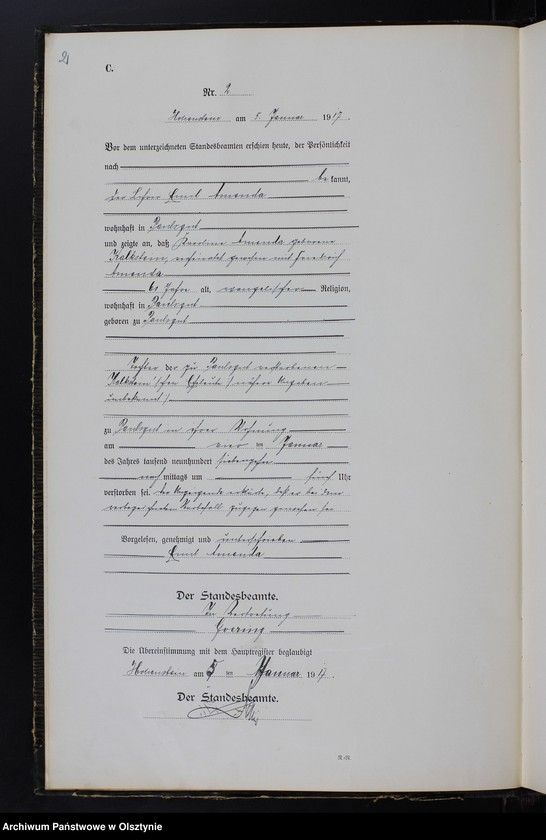 2
C.
Nr. 2
am 5. Januar 1917.
Vor dem unterzeichneten Standesbeamten erschien heute, der Persönlichkeit
nach
be kannt,
der Lehrer Emil Amenda
wohnhaft in Paulsgut
und zeigte an, daß Karoline Amenda geborene
Kalkstein, verheiratet gewesen mit Friedrich
Amenda
Jahre alt, evangelischer Religion,
wohnhaft in Paulsgut
geboren zu Paulsgut
Tochter der zu Paulsgut verstorbenen
Kalkstein'schen Eheleute (nähere Angaben
unbekannt)
zu Paulsgut in ihrer Wohnung
am vier ten Januar
des Jahres tausend neunhundert siebenzehn
nach mittags um fünf Uhr
verstorben sei. Der Anzeigende erklärte, daß er bei dem
Sterbefall zugegen gewesen sei
Vorgelesen, genehmigt und unterschrieben
Emil Amenda
Der Standesbeamte.
In Vertretung
Goering
Die Übereinstimmung mit dem Hauptregister beglaubigt
Hohenstein am 5 ten Januar 1917.
Der Standesbeamte.
Archiwum Państwowe w Olsztynie